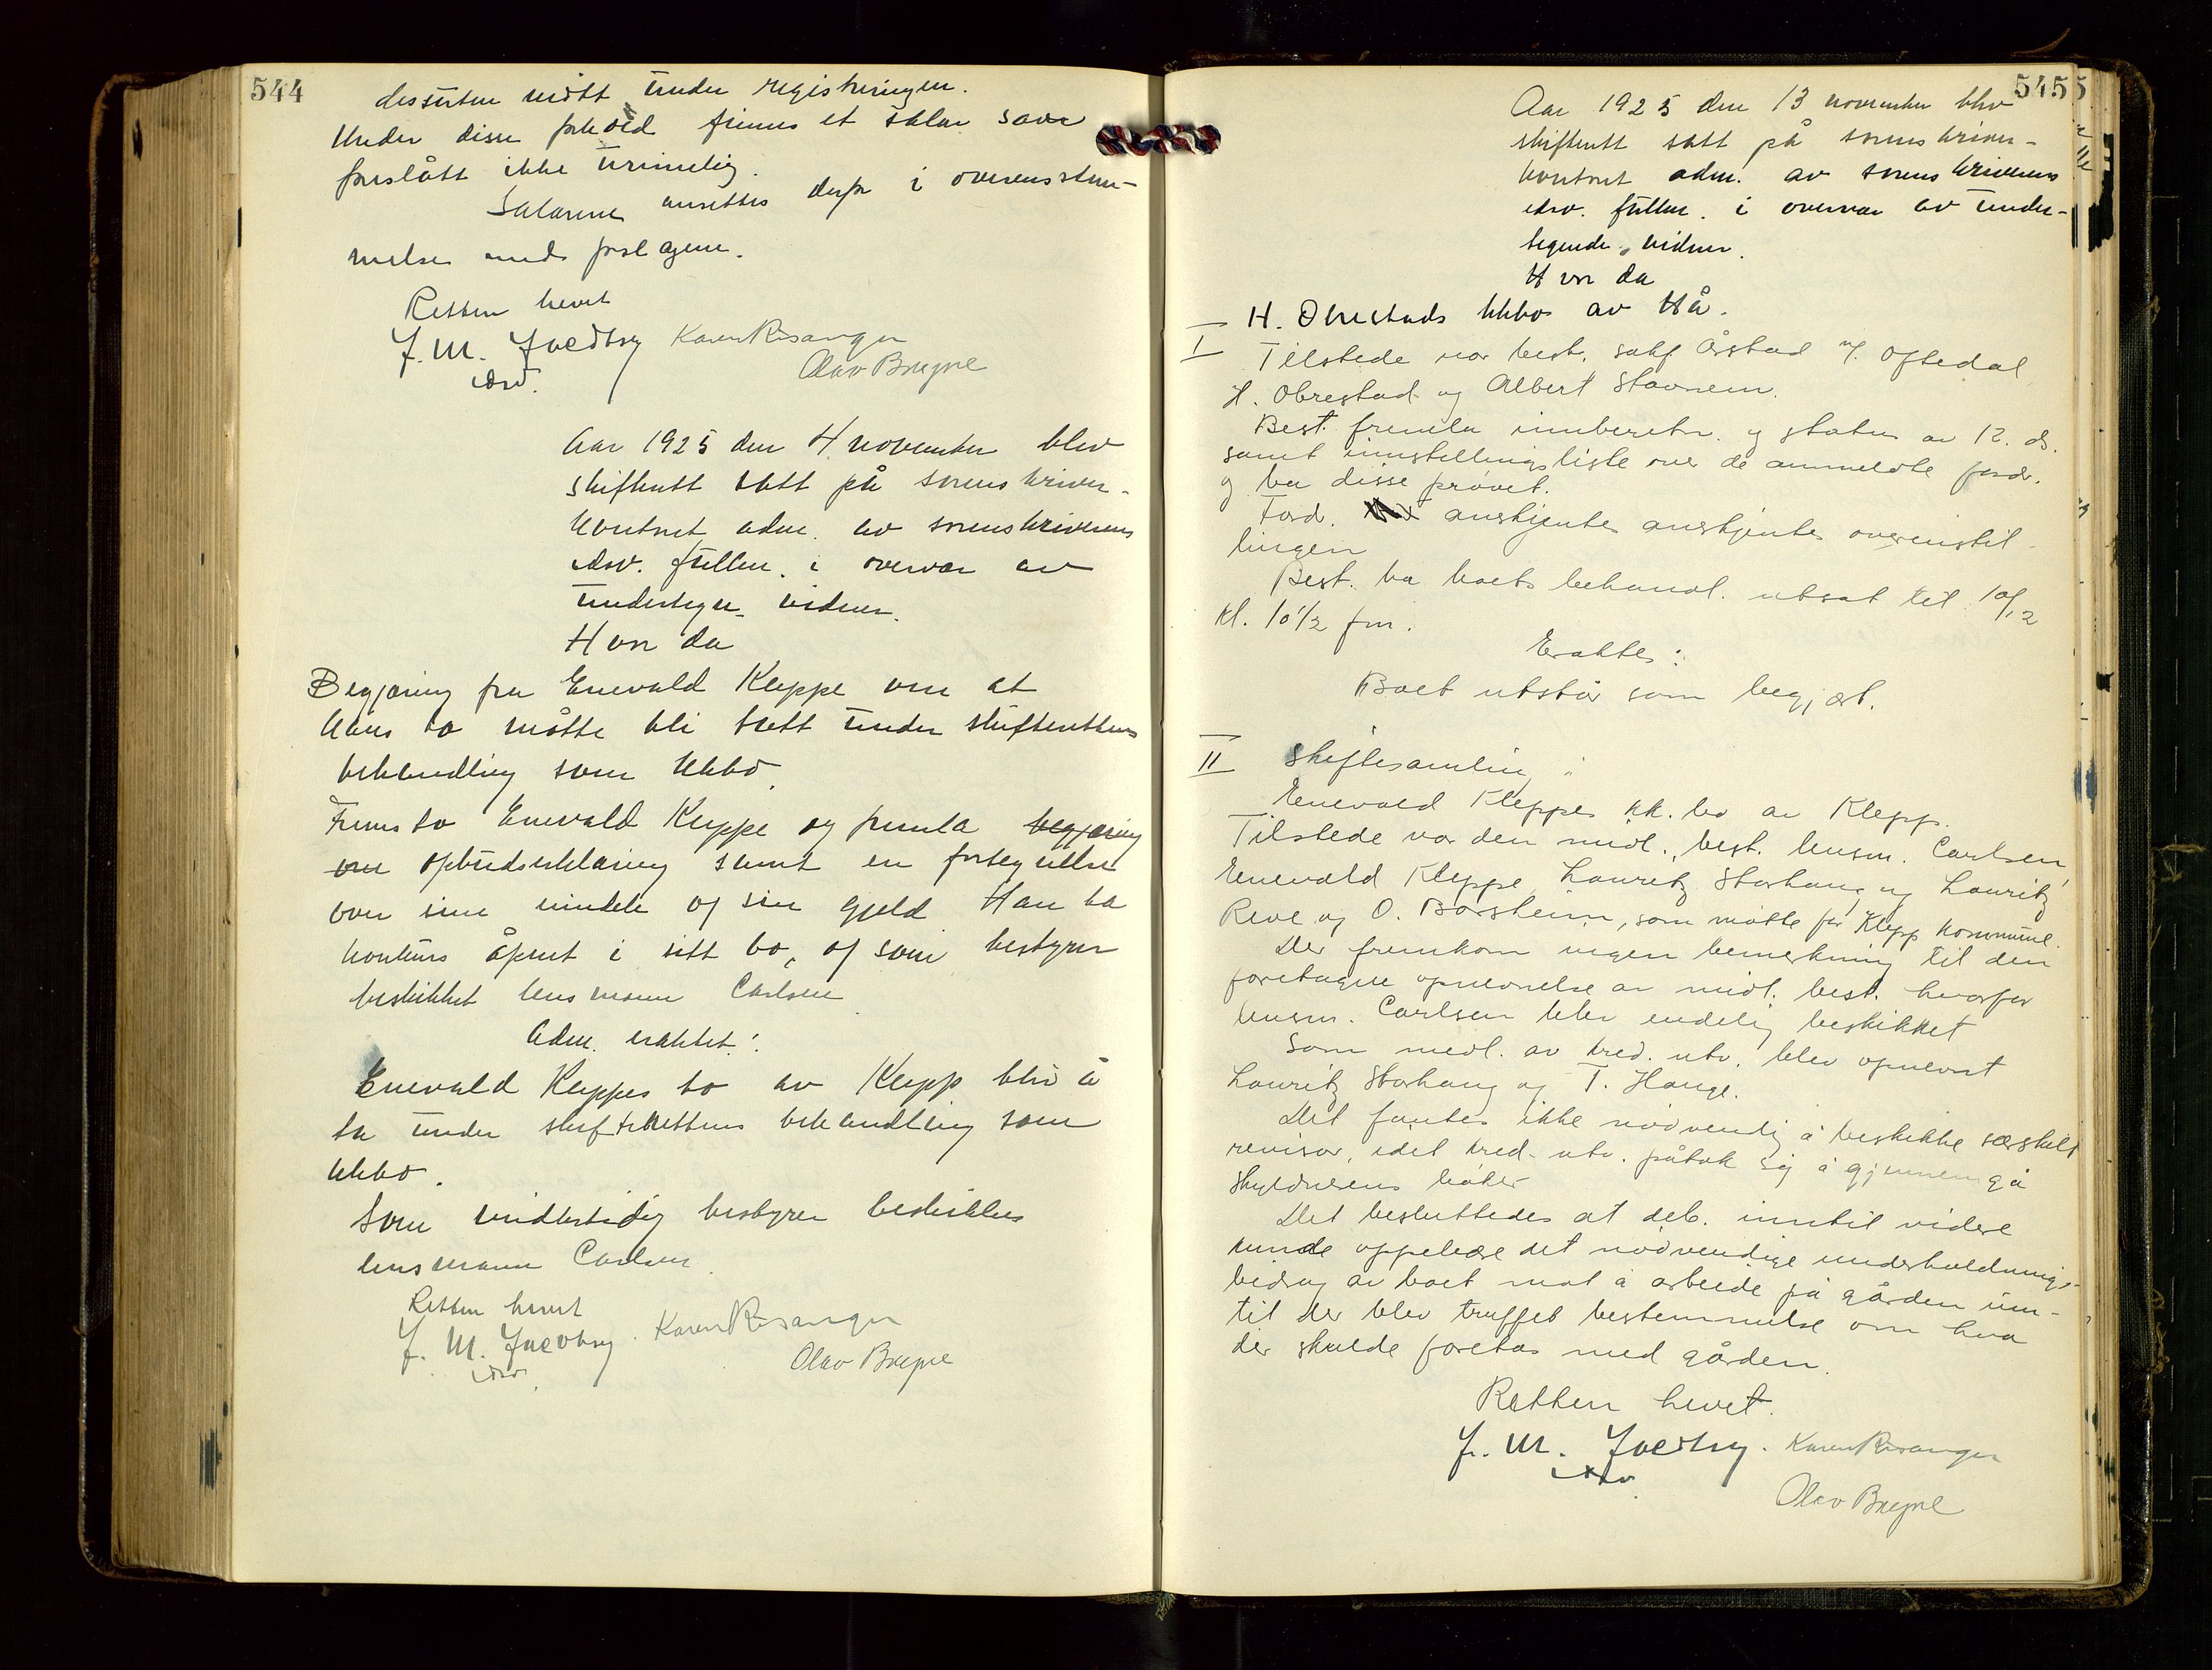 544
dessuten møtt under registreringen.
Under disse forhold finnes et salær som
foreslått ikke urimelig.
Salærene ansettes derfor i overensstem-
melse med forslagene.
Retten hevet
J. M. Jacobsy Karen Risanger
edsv. Olav Bryne
Aar 1925 den 4 november blev
skifterett satt på sorenskriver-
kontoret adm. av sorenskriverens
edsv. fullm. i overvær av
undertegn. vidner.
Hvor da
Begjæring fra Enevald Kleppe om at
hans bo måtte bli tatt under skifterettens
behandling som kkbo.
Frems to Enevald Kleppe og fremla begjæring
om opbudserklæring samt en fortegnelse
over sine eiendele og sin gjeld Han ba
konkurs åpnet i sitt bo, og som bestyrer
beskikket lensmann Carlsen
Adm. eraktet:
Enevald Kleppes bo av Klepp blir å
ta under skifterettens behandling som
kkbo.
Som midlertidig bestyrer beskikkes
lensmann Carlsen.
Retten hevet
J. M. Jacobsy. Karen Risanger
edsv. Olav Bryne
545
Aar 1925 den 13 november blev
skifterett satt på sorenskriver-
kontoret adm. av sorenskriverens
edsv. fullm. i overvær av under-
tegnede vidner.
Hvor da
I H. Obrestads kkbo av Hå.
Tilstede var best. sakf Årstad v/ Oftedal
H. Obrestad og Albert Stavnem.
Best. fremla innberetn. og status av 12. ds.
samt innstillingsliste over de anmeldte fordr.
og ba disse prøvet.
Ford. anerkjentes anerkjentes overinstil-
lingen
Best. ba boets behandl. utsat til 10/12
kl. 10 1/2 fm.
Eraktes:
Boet utstår som begjært.
II Skiftesamling i
Enevald Kleppes kk. bo av Klepp.
Tilstede var den midl. best. lensm. Carlsen,
Enevald Kleppe, Lauritz Storhaug og Lauritz
Reve og O. Borsheim, som møtte for Klepp kommune.
Der fremkom ingen bemerkning til den
foretagne opnevnelse av midl. best. hvorfor
lensm. Carlsen blev endelig beskikket
Som medl. av kred. utv. blev opnevnt
Lauritz Storhaug og T. Hauge.
Det fantes ikke nødvendig å beskikke særskilt
revisor, idet kred. utv. påtok sig å gjennemgå
skyldnerens bøker
Det besluttedes at deb. inntil videre
kunde oppebære det nødvendige underholdnings-
bidrag av boet mot å arbeide på gården inn-
til der blev truffet bestemmelse om hva
der skulde foretas med gården.
Retten hevet.
J. M. Jacobsy. Karen Risanger
edsv. Olav Bryne